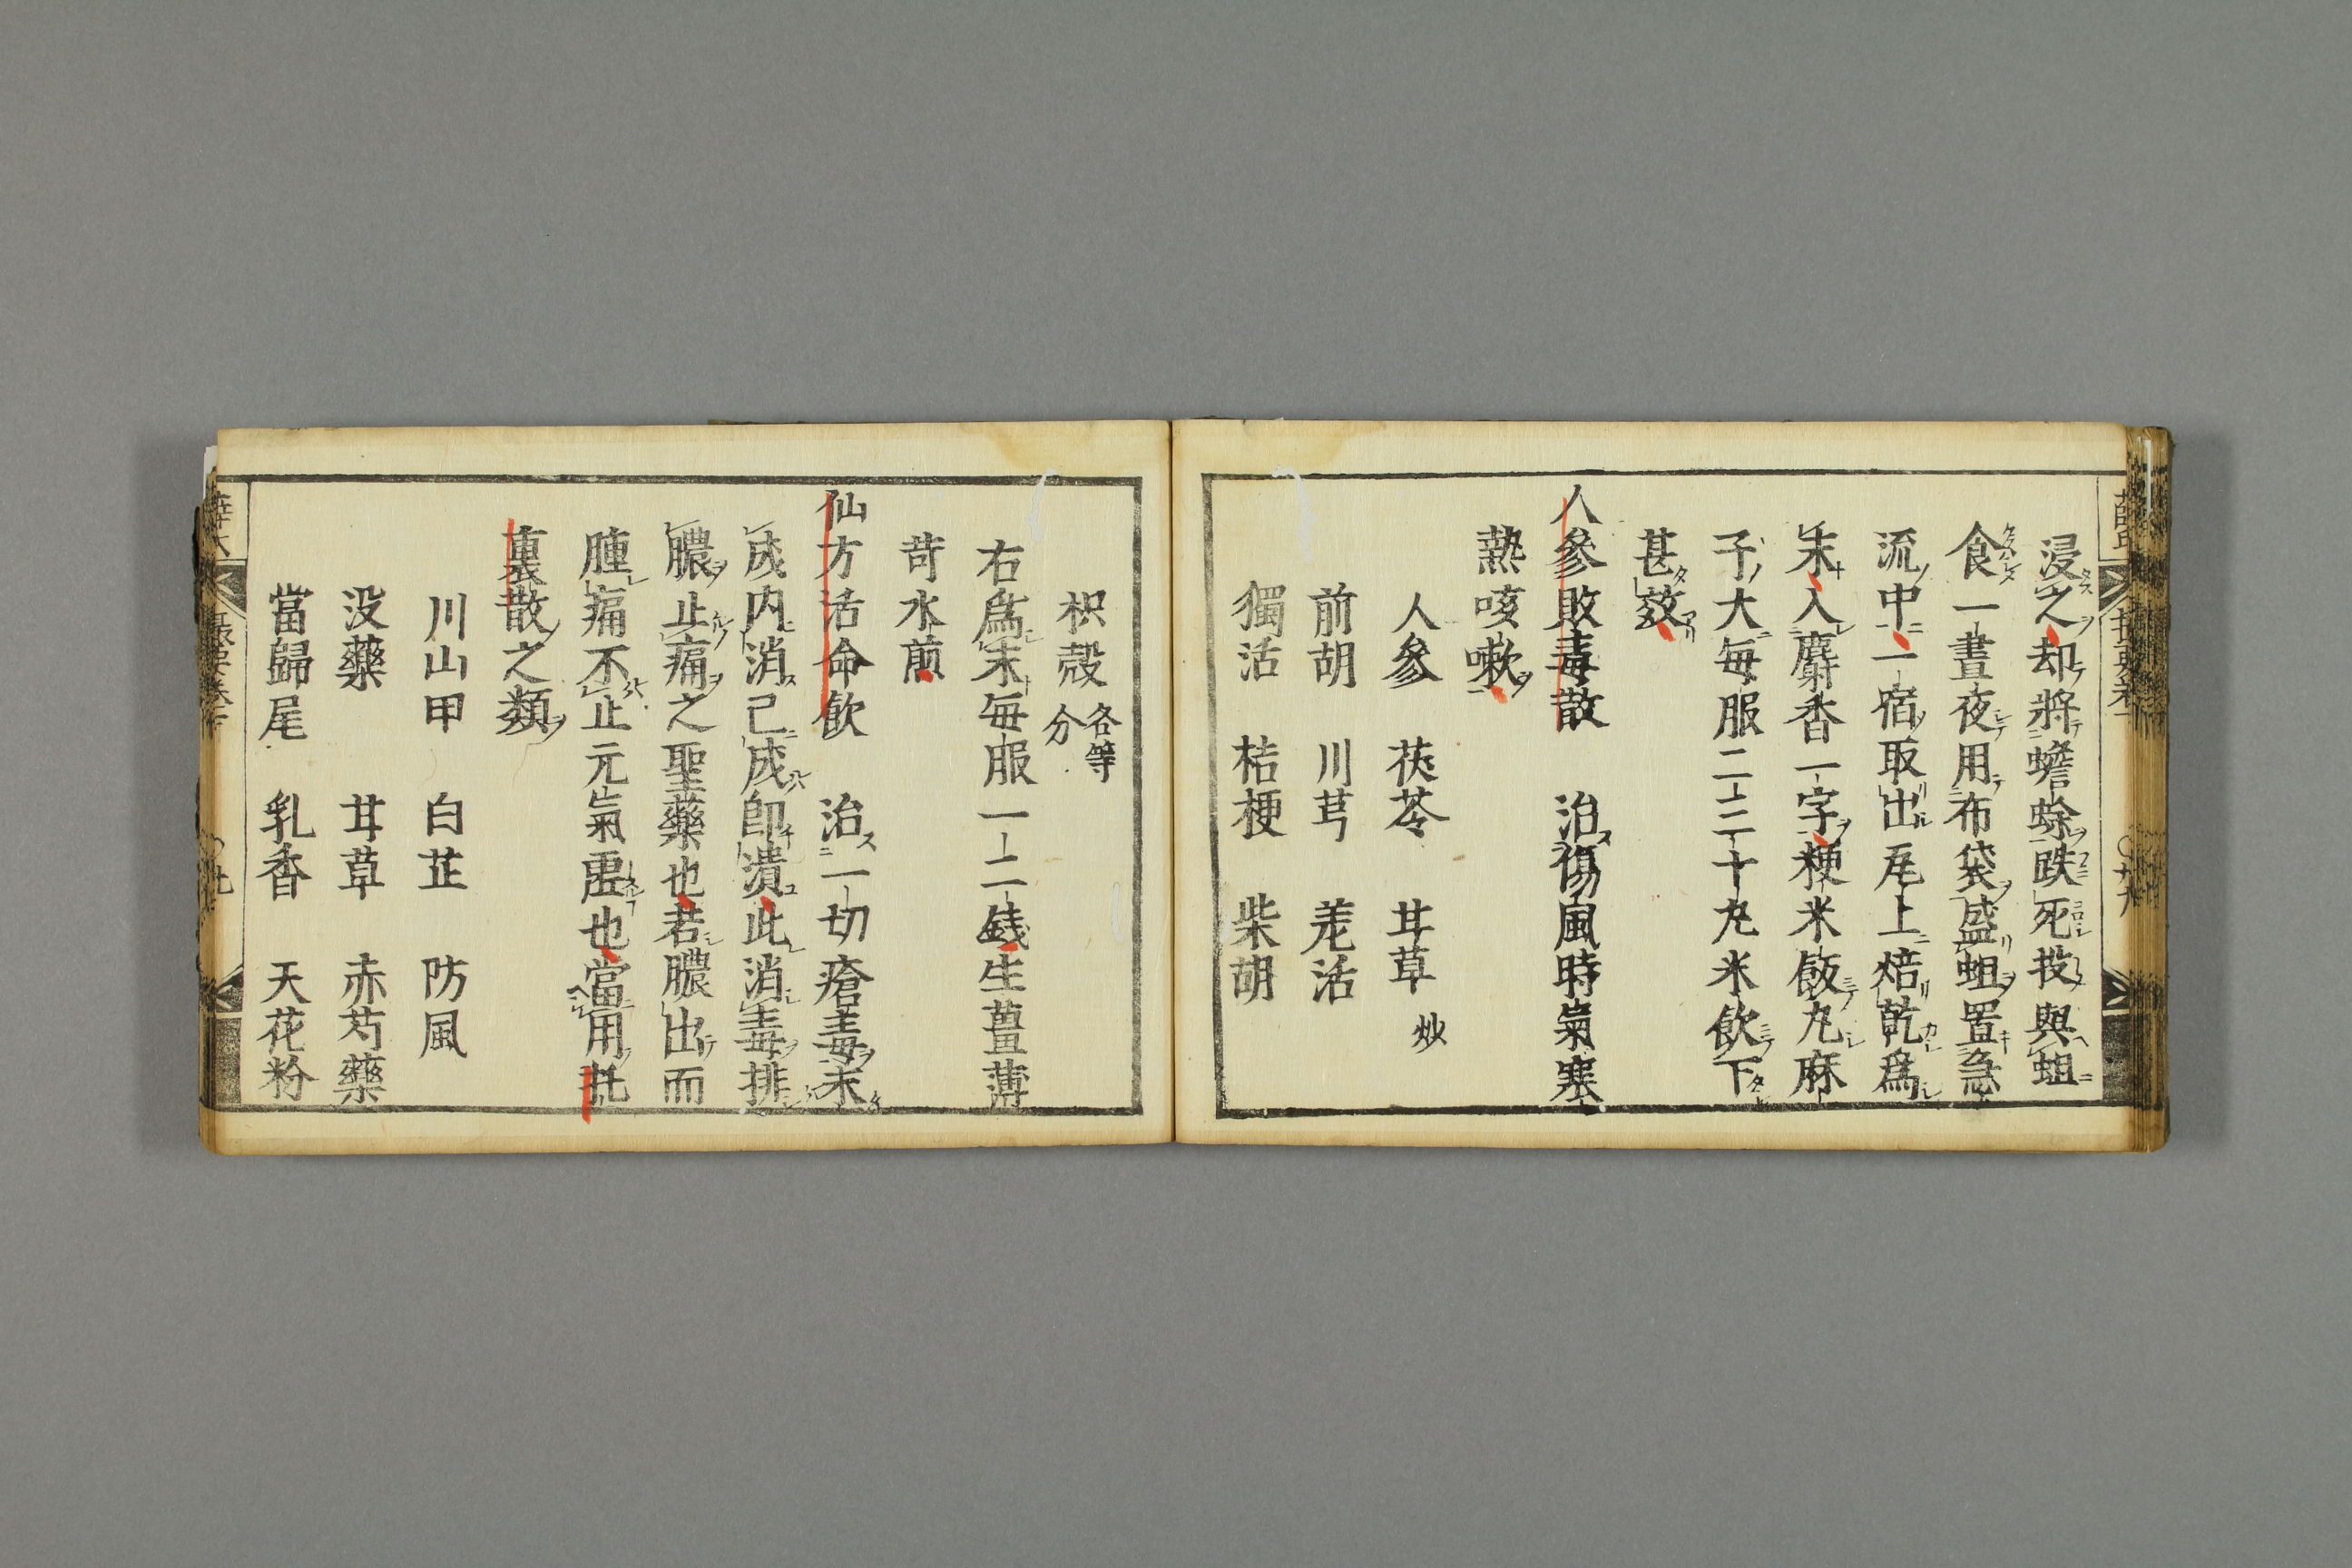 浸之却將蟾蜍跌死投與蛆
食一晝夜用布袋盛蛆置急
流中一宿取出瓦上焙乾爲
末入麝香一字粳米飯丸麻
子大每服二三十丸米飮下
甚效
人參敗毒散　治傷風時氣寒
熱咳嗽
人參　茯苓　甘草炒
前胡　川芎　羌活
獨活　桔梗　柴胡
枳殼各等分
右爲末每服一二錢生薑薄
苛水煎
仙方活命飮　治一切瘡毒未
成內消已成卽潰此消毒排
膿止痛之聖藥也若膿出而
腫痛不止元氣虛也當用托
裏散之類
川山甲　白芷　防風
沒藥　甘草　赤芍藥
當歸尾　乳香　天花粉